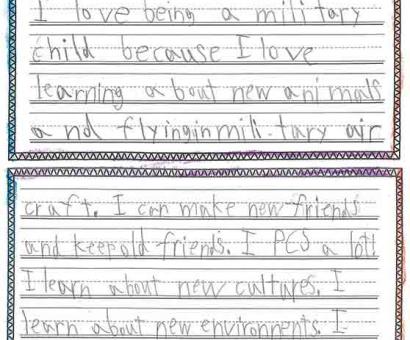 I love being a military
child because I love
learning about new animals
and flyinginmili-tary air
craft. I can make new friends
and keepold friends. I PCS a lot!
I learn about new cultures. I
learn about new environnents. I